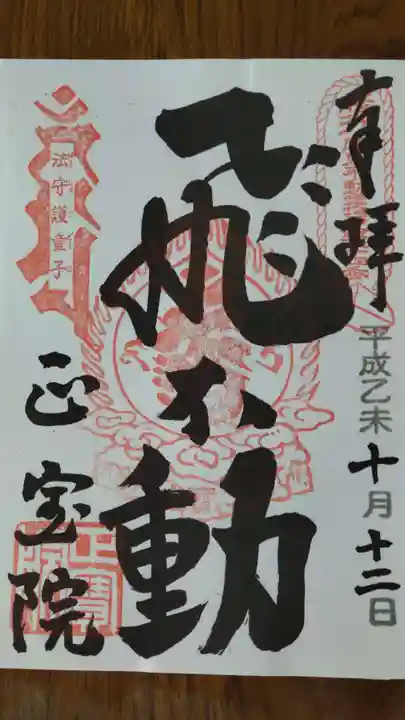 奉拝
平成乙未十月十二日
飛不動
法守護童子
正宝院
正寶院